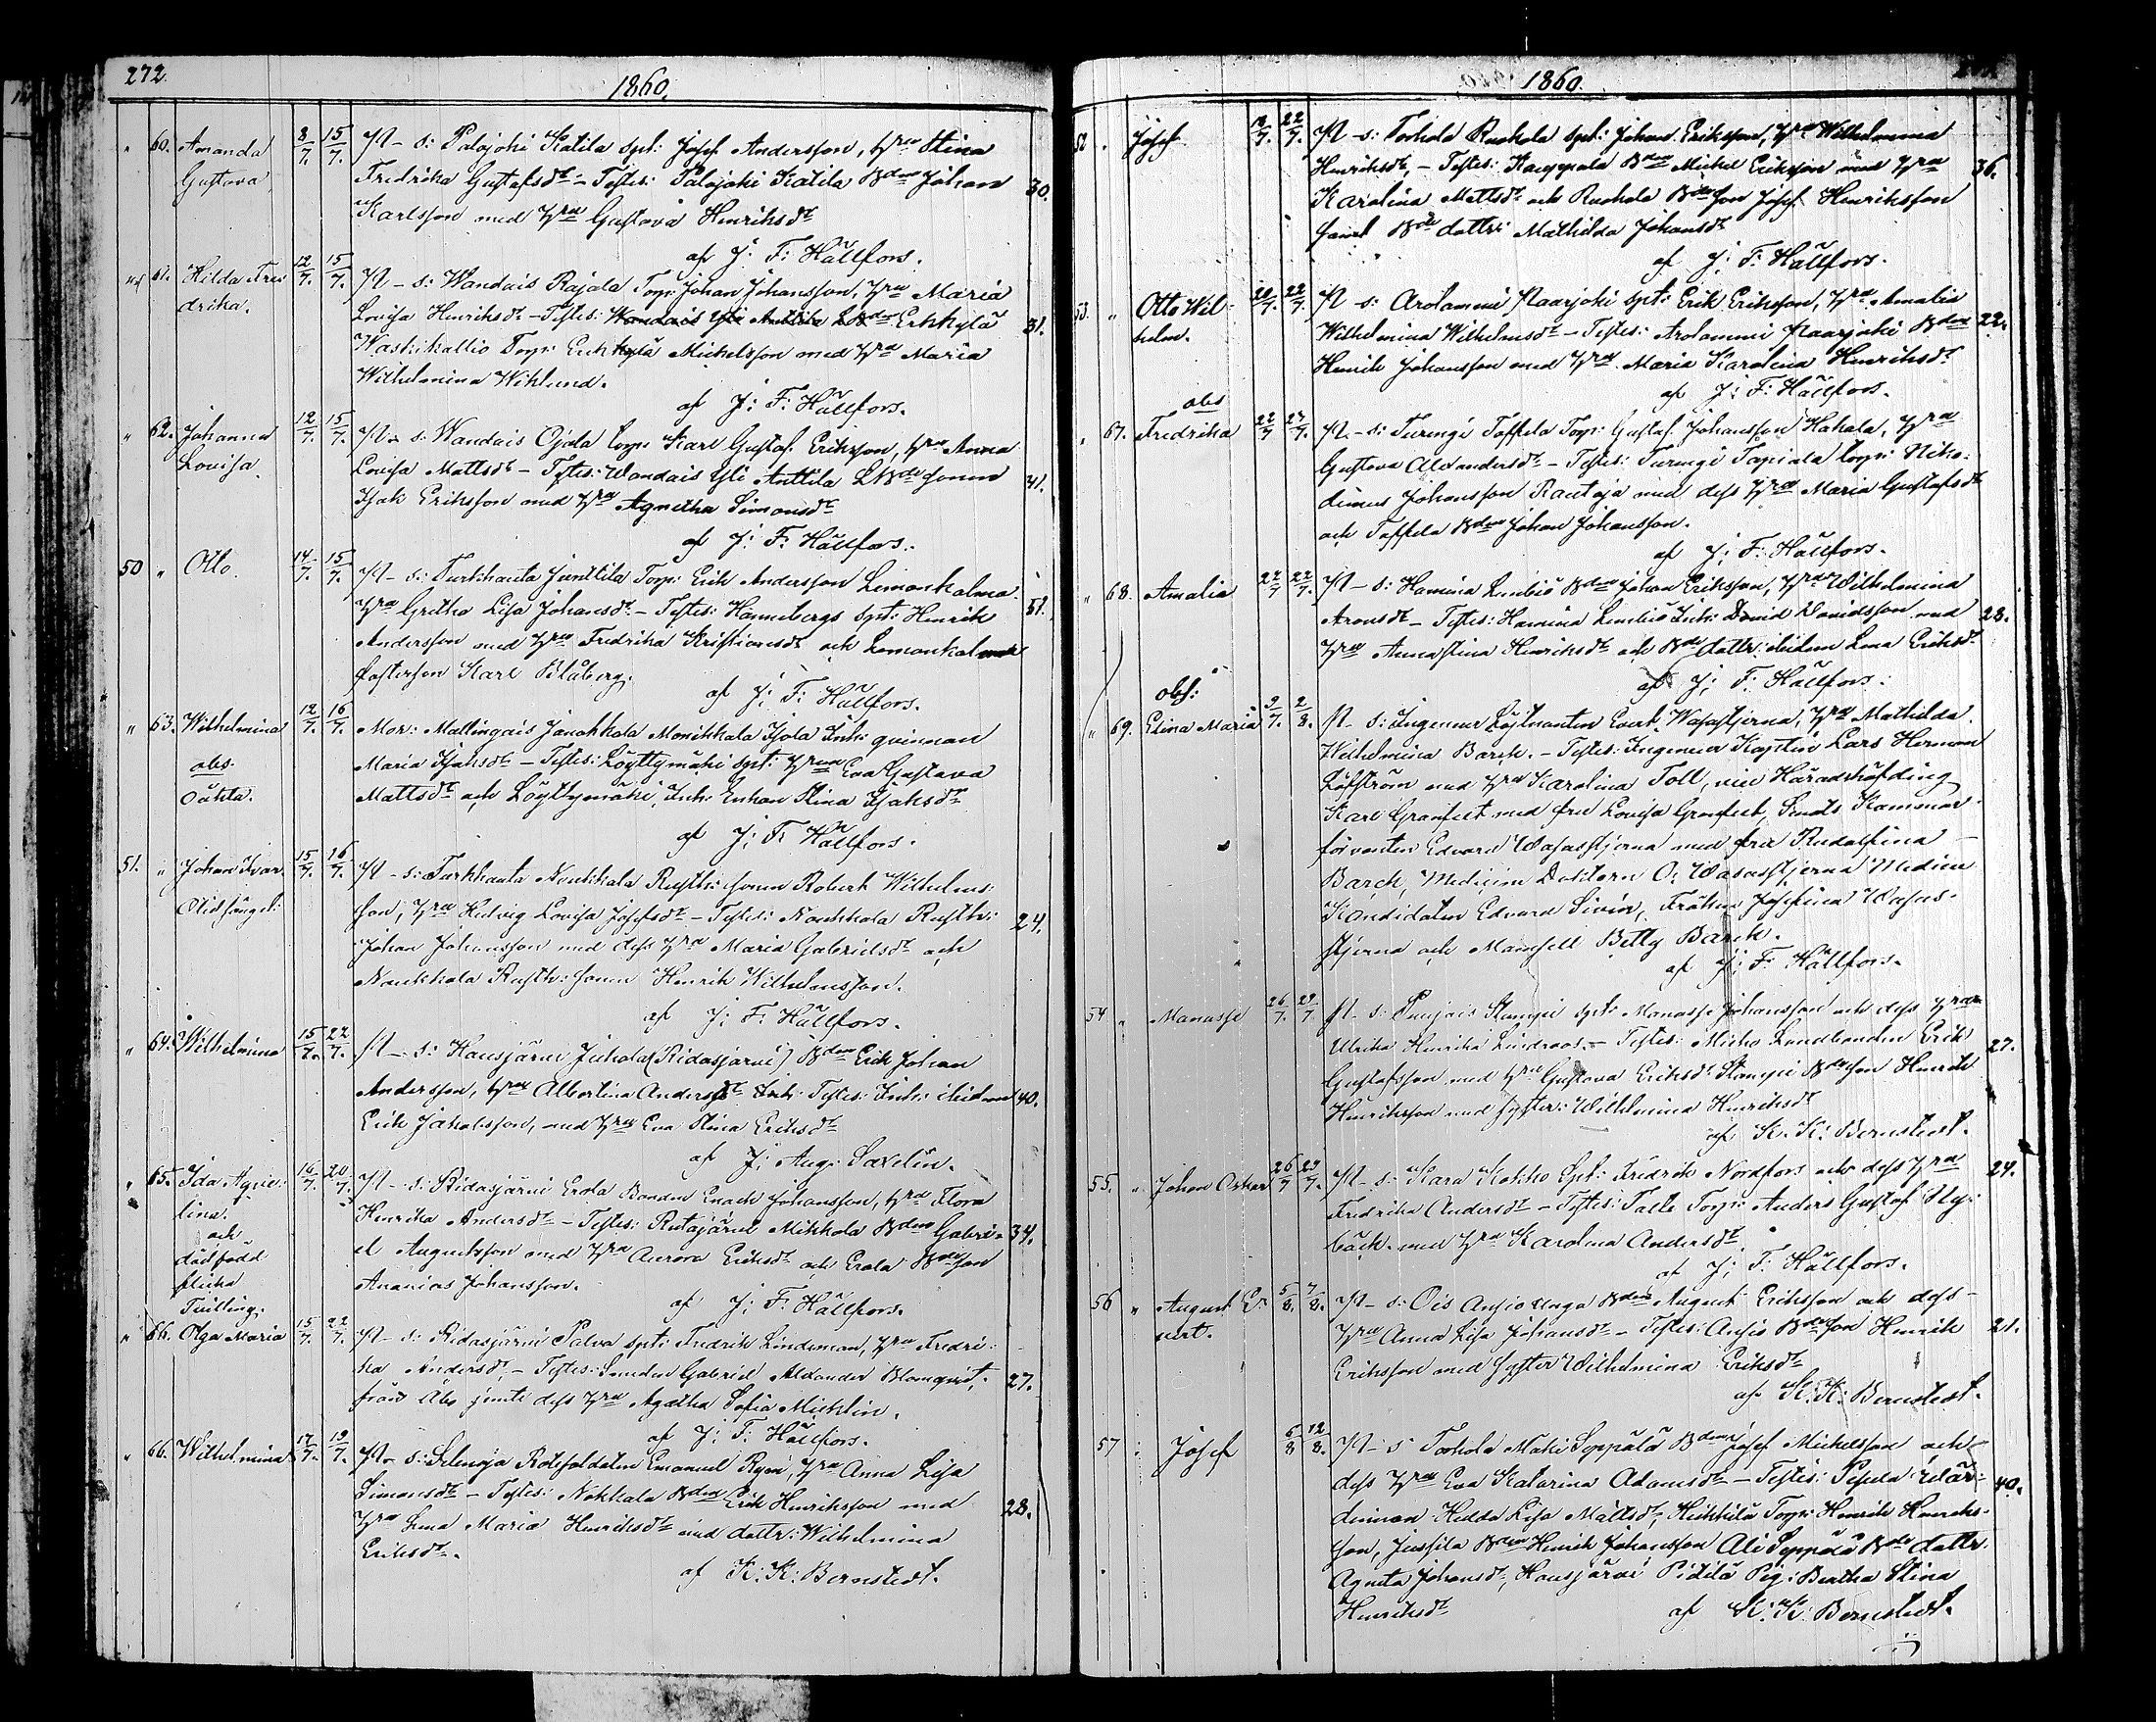 272.
1860.
" 60. Amanda 8/7. 15/7. Pt - s: Palojoki Katila spt: Josef Andersson, Hru Stina
Gustava Fredrika Gustafsdr - Testes: Palojoki Katila Bdn Johan 30.
Karlsson med Hru Gustava Henriksdr
af J: F: Hällfors.
61. Hilda Fre- 12/7. 15/7. Pt - s: Wandais Rajala Torp: Johan Johansson, Hru Maria
drika. Lovisa Henriksdr - Testes: Erkkylä 31.
Waskikallio Torp: Michelsson med Hru Maria
Wilhelmina Wiklund.
af J: F: Hällfors.
" 62. Johanna 12/7. 15/7. Pt - s: Wandais Ojala torp: Karl Gustaf Eriksson, Hru Anna
Lovisa Lovisa Mattsdr - Testes: Wandais Yli Anttila LBde sonen 41.
Isak Eriksson med Hru Agnetha Simonsdr
af J: F: Hällfors.
50 " Otto. 14/7. 15/7. Pt - s: Turkhauta Junttila Torp: Erik Andersson Lemonkalma
Hru Gretha Lisa Johansdr - Testes: Hannebergs spt: Henrik 51.
Andersson med Hru Fredrika Kristiansdr och Lemonkalma
fosterson Karl Blåberg.
af J: F: Hällfors.
" 63. Wilhelmina 12/7. 16/7. Mor: Mallingais Janakkala Monikkala Isola Inh: qvinnan
obs. Maria Isaksdr - Testes: Löyttymäki spt: Hrun Eva Gustava
oäkta. Mattsdr och Löyttymäki, Inh: Enkan Stina Isaksdr
af J: F: Hällfors.
51. " Johan Ivar 15/7. 16/7. Pt - s: Turkhauta Noukkala Rusth: sonen Robert Wilhelms-
son, Hru Hedvig Lovisa Josefsdr - Testes: Noukkola Rusth: 24.
Johan Johansson med dess Hru Maria Gabrielsdr och
Noukkala Rusth: sonen Henrik Wilhelmsson.
af J: F: Hällfors.
" 64. Wilhelmina 15/7. 22/7. Pt - s: Hausjärvi Juhola (Ridasjärvi) Bdn Erik Johan
Andersson, Hru Albertina Andersdr Testes: Inh: ibidem 40.
Erik Jakobsson, med Hru Eva Stina Eriksdr
af J: Aug: Saxelin.
" 65. Ida Agne- 16/7. 20/7. Pt - s: Ridasjärvi Erola Bonden Enoch Johansson, Hru Flora
lina. Henrika Andersdr - Testes: Rutajärvi Mikkola Bdn Gabri- 34.
och el Augustsson med Hru Aurora Eriksdr och Erola Bdeson
dödfödd Ananias Johansson.
flicka
Tvilling. af J: F: Hällfors.
" 66. Olga Maria 15/7. 22/7. Pt - s: Ridasjärvi Palva spt: Fredrik Lindeman, Hru Fredri-
ka Andersdr - Testes: Smeden Gabriel Alexander Blomqvist, 27.
från Åbo jemte dess Hru Agatha Sofia Michlin.
af J: F: Hällfors.
" 66. Wilhelmina 17/7. 19/7. Pt - s: Selenoja Rotesoldaten Emanuel Rym, Hru Anna Lisa
Simonsdr - Testes: Nokkala Bdn Erik Henriksson med 28.
Hru Lena Maria Henriksdr med dottr: Wilhelmina
Eriksdr.
af K: K: Bernstedt.
1860.
52 " Josef 18/7. 22/7. Pt - s: Torhola Ruohola spt: Johan Eriksson, Hru Wilhelmina
Henriksdr - Testes: Kauppala Bdn Michel Eriksson med Hru 36.
Karolina Mattsdr och Ruohola Bdeson Josef Henriksson
samt Bde dottr: Mathilda Johansdr
af J: F: Hällfors.
53. " Otto Wil- 20/7. 22/7. Pt - s: Arolammi Paarjoki spt: Erik Eriksson, Hru Amalia
helm. Wilhelmina Wilhelmsdr - Testes: Arolammi Paarjoki Bdn 22.
Henrik Johansson med Hru Maria Karolina Henriksdr
af J: F: Hällfors.
obs
" 67. Fredrika 22/7 23/7. Pt - s: Turengi Taffela Torp: Gustaf Johansson Hakala, Hru
Gustava Alexandersdr - Testes: Turengi Tapiala torp: Niko-
demus Johansson Rautoja med dess Hru Maria Gustafsdr
och Taffela Bdn Johan Johansson.
af J: F: Hällfors.
" 68. Amalia 22/7 22/7. Pt - s: Hamina Limbiö Bdn Johan Eriksson, Hru Wilhelmina
Aronsdr - Testes: Hamina Limbiö Inh: David Davidsson med 28.
Hru Anna Stina Henriksdr och Bde dottr: ibidem Lena Eriksdr
af J: F: Hällfors.
obs:
" 69. Elina Maria 9/7. 2/8. Pt - s: Ingenieur Löjtnanten Evert Wasastjerna, Hru Mathilda
Wilhelmina Barck. - Testes: Ingenieur Kapten Lars Herman
Löfström med Hru Karolina Toll, vice Häradshöfding
Karl Granfelt med fru Lovisa Granfelt, Senats Kammar-
förvanten Edvard Wasastjerna med fru Rudolfina
Barck, Medicine Doktorn O: Wasastjerna Medicine
Kandidaten Edvard Sivén, Fröken Josefina Wasa-
stjerna och Mamsell Betty Barck.
af J: F: Hällfors.
54 " Manasse 26/7. 29/7. Pt - s: Puujais Stampi spt: Manasse Johansson och dess Hru
Ulrika Henrika Lindroos. - Testes: Micko Landbonden Erik 27.
Gustafsson med Hru Gustava Eriksdr Stampi Bdeson Henrik
Henriksson med syster: Wilhelmina Henriksdr
af K: K: Bernstedt.
55. " Johan Oskar 26/7 29/7. Pt - s: Kara Kokko Spt: Fredrik Nordfors och dess Hru 24.
Fredrika Andersdr - Testes: Torp: Anders Gustaf Ny-
bäck med Hru Karolina Andersdr
af J: F: Hällfors.
56 " August E- 5/8. 7/8. Pt - s: Ois Ansio Bdn August Eriksson och dess
vert. Hru Anna Lisa Johansdr - Testes: Ansio Bdeson Henrik 21.
Eriksson med syster Wilhelmina Eriksdr
af K: K: Bernstedt.
57 " Josef 6/8 12/8. Pt - s: Torhola Maki Seppälä Bdn Josef Mickelsson och
dess Hru Eva Katarina Adamsdr - Testes: Wär- 40.
dinnan Hedda Lisa Mattsdr, Heikkilä Torp: Henrik Henriks-
son, Jussila Bdn Henrik Johansson Ali Seppälä Bde dottr.
Agneta Johansdr, Hausjärvi Pietilä Pig: Bertha Stina
Henriksdr af K: K: Bernstedt.